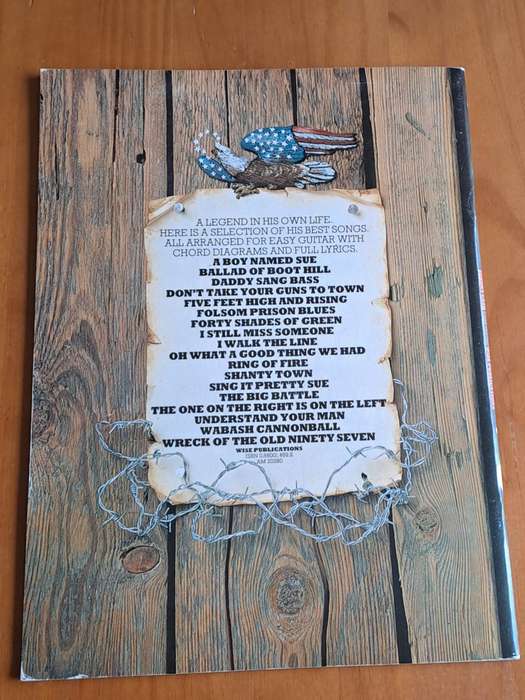 A LEGEND IN HIS OWN LIFE.
HERE IS A SELECTION OF HIS BEST SONGS.
ALL ARRANGED FOR EASY GUITAR WITH
CHORD DIAGRAMS AND FULL LYRICS.
A BOY NAMED SUE
BALLAD OF BOOT HILL
DADDY SANG BASS
DON'T TAKE YOUR GUNS TO TOWN
FIVE FEET HIGH AND RISING
FOLSOM PRISON BLUES
FORTY SHADES OF GREEN
I STILL MISS SOMEONE
I WALK THE LINE
OH WHAT A GOOD THING WE HAD
RING OF FIRE
SHANTY TOWN
SING IT PRETTY SUE
THE BIG BATTLE
THE ONE ON THE RIGHT IS ON THE LEFT
UNDERSTAND YOUR MAN
WABASH CANNONBALL
WRECK OF THE OLD NINETY SEVEN
WISE PUBLICATIONS
ISBN
AM